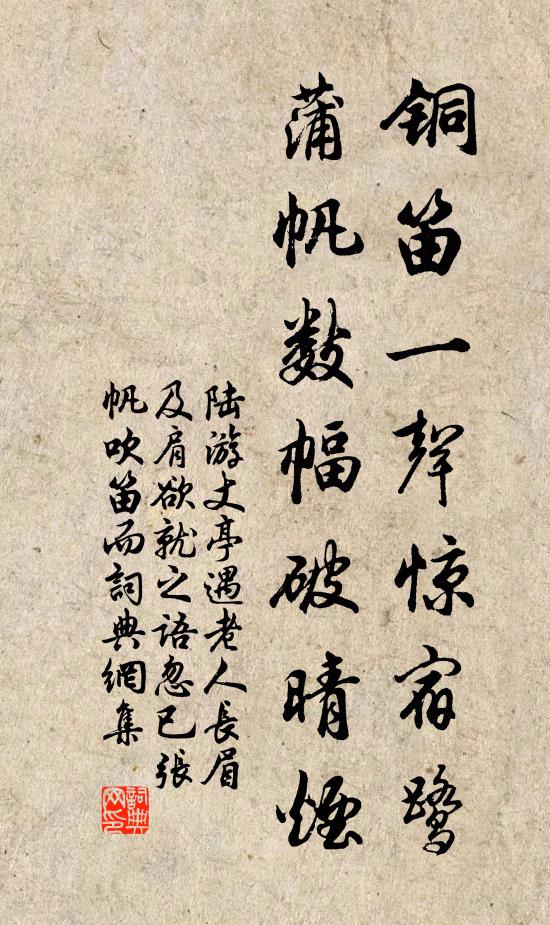 铜笛一聲惊宿鹭
蒲帆数幅破晴烟
陆游丈亭遇老人長眉
及肩欲就之语忽已張
帆吹笛而詞典網集
詞典网印